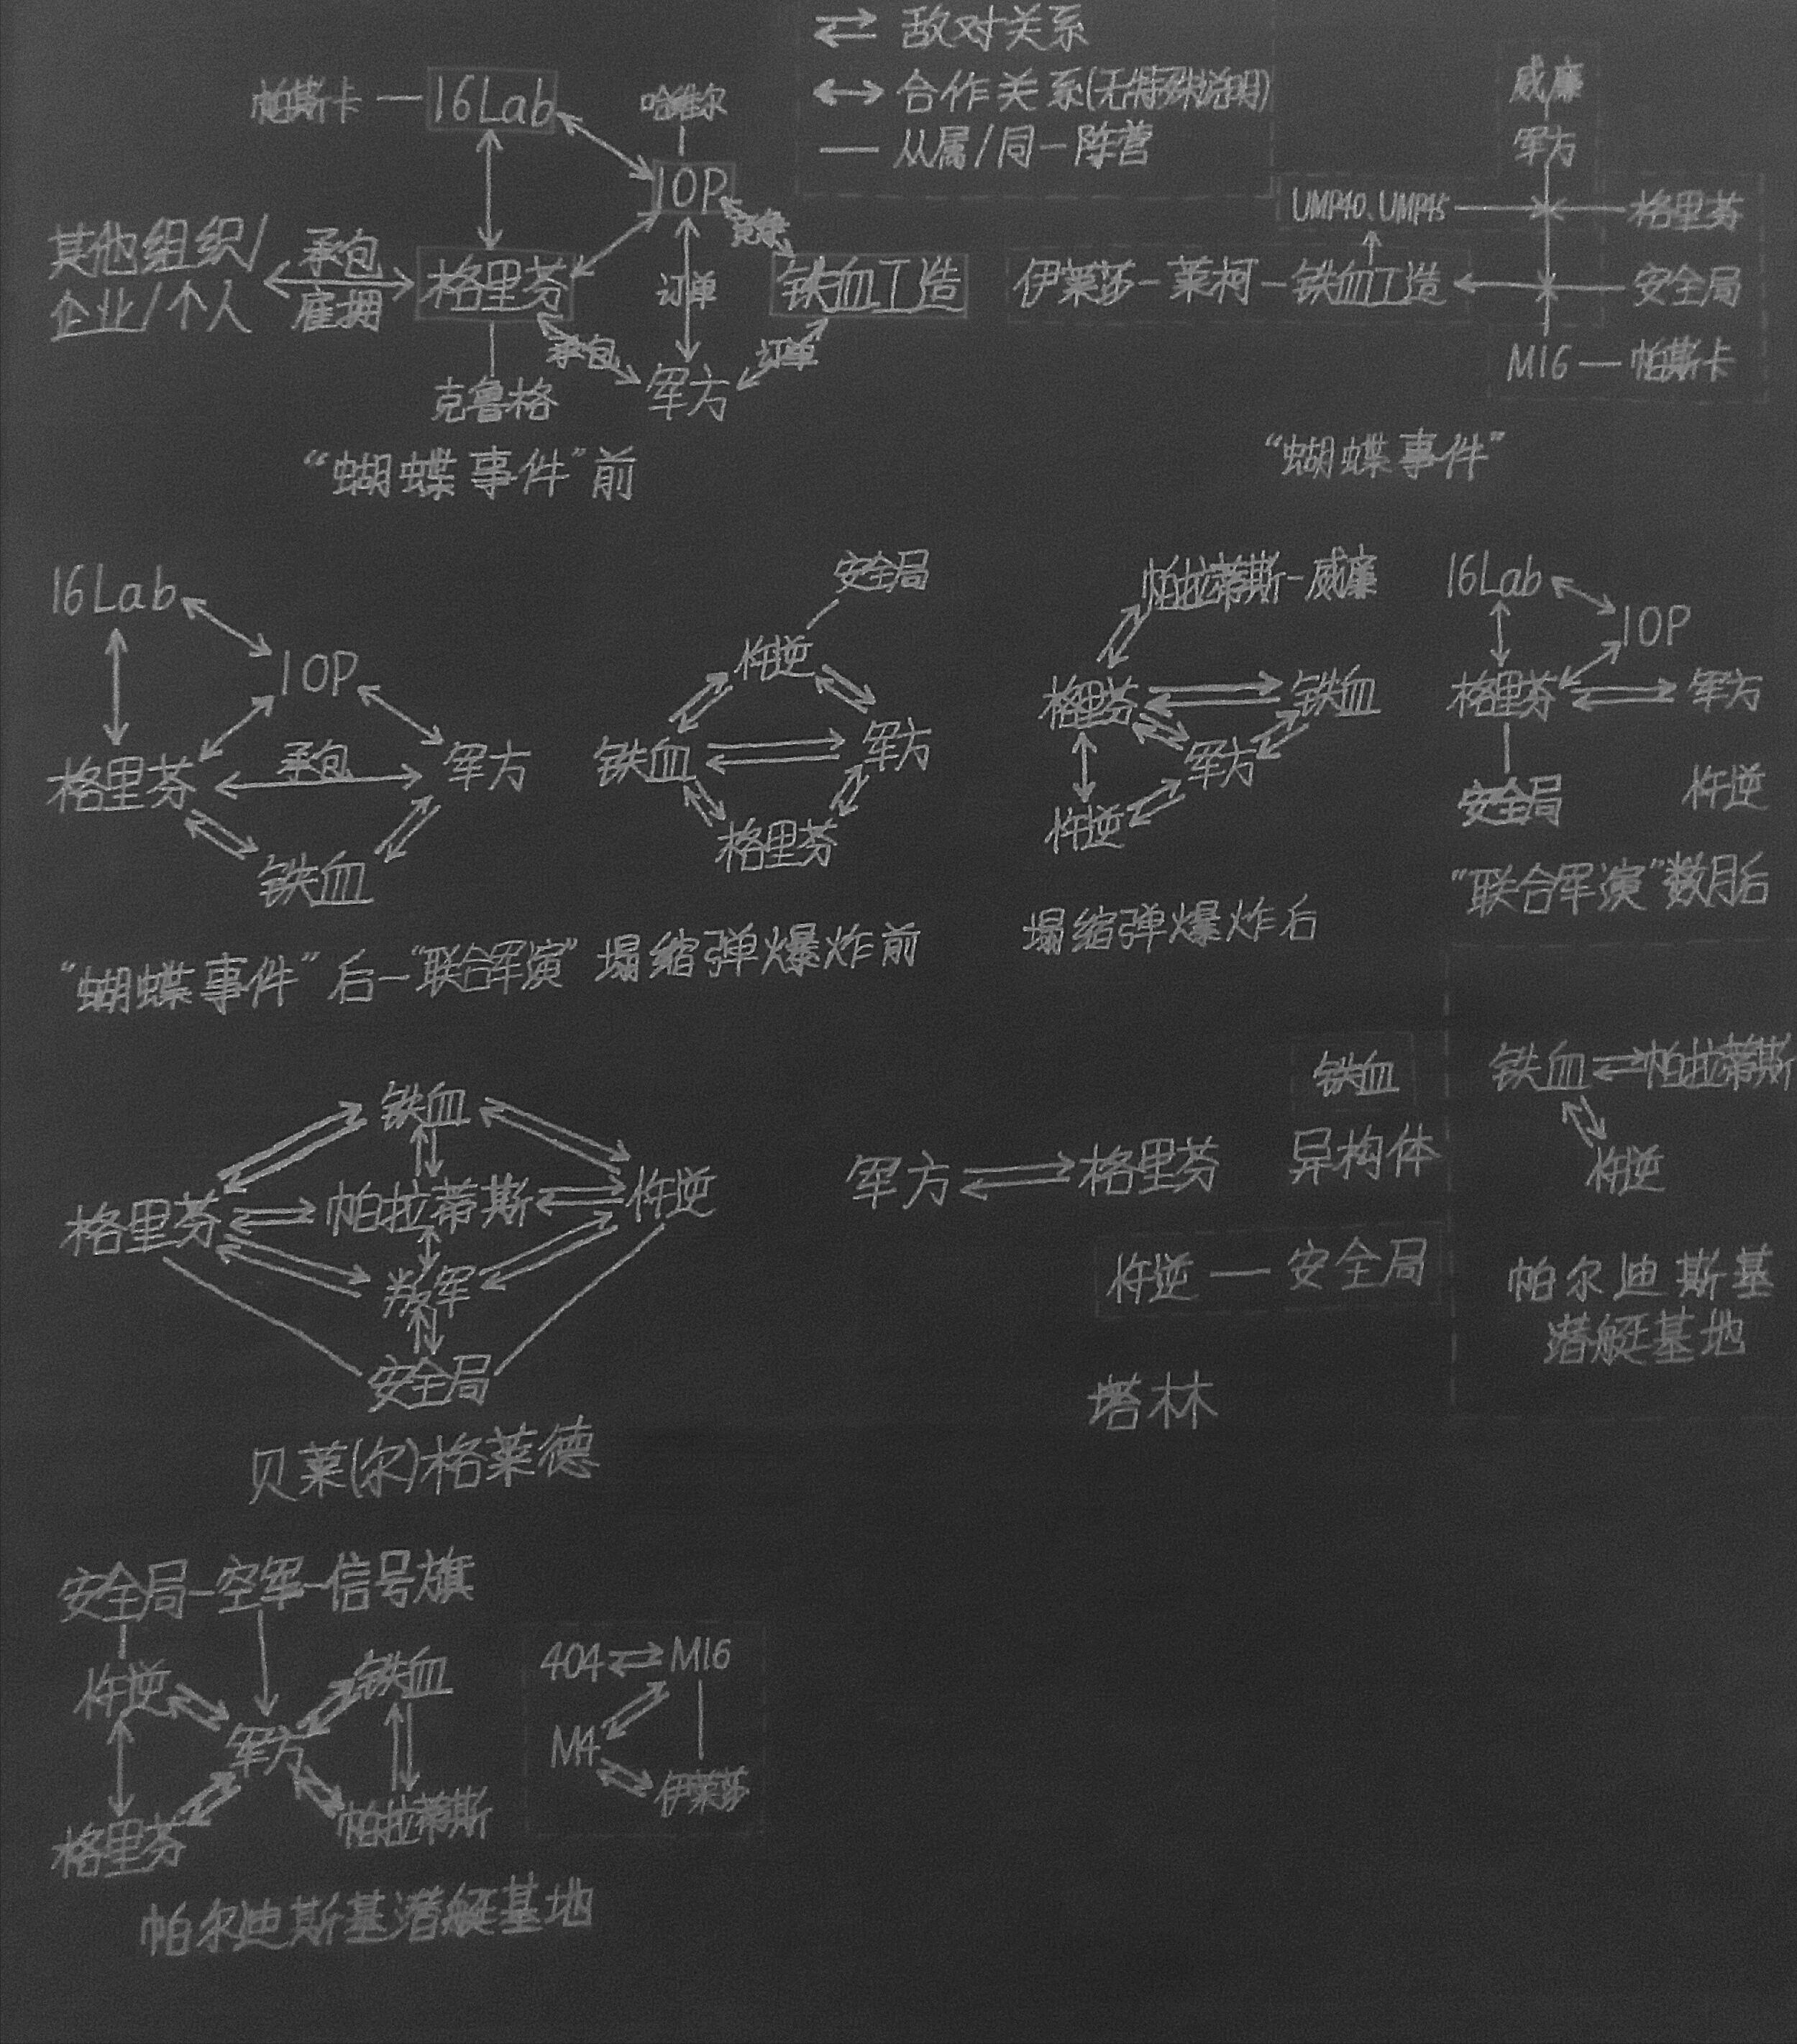 敌对关系
合作关系(无特殊说明)
从属/同一阵营
帕斯卡 16Lab 哈维尔
IOP
竞争
其他组织/
企业/个人
承包
雇拥
格里芬 订单 铁血工造
承包 订单
克鲁格 军方
“蝴蝶事件”前
威廉
军方
UMP40、UMP45 格里芬
伊莱莎-莱柯-铁血工造 安全局
M16 帕斯卡
“蝴蝶事件”
16Lab
IOP
格里芬 承包 军方
铁血
安全局
忤逆
铁血 军方
格里芬
“蝴蝶事件”后-“联合军演”塌缩弹爆炸前
帕拉蒂斯-威廉
格里芬 铁血
军方
忤逆
塌缩弹爆炸后
16Lab
IOP
格里芬 军方
安全局 忤逆
“联合军演”数月后
铁血
格里芬 帕拉蒂斯 忤逆
叛军
安全局
贝莱(尔)格莱德
铁血
军方 格里芬 异构体
忤逆 — 安全局
塔林
铁血 帕拉蒂斯
忤逆
帕尔迪斯基
潜艇基地
安全局-空军-信号旗
忤逆 铁血
军方
格里芬 帕拉蒂斯
404 M16
M4
伊莱莎
帕尔迪斯基潜艇基地